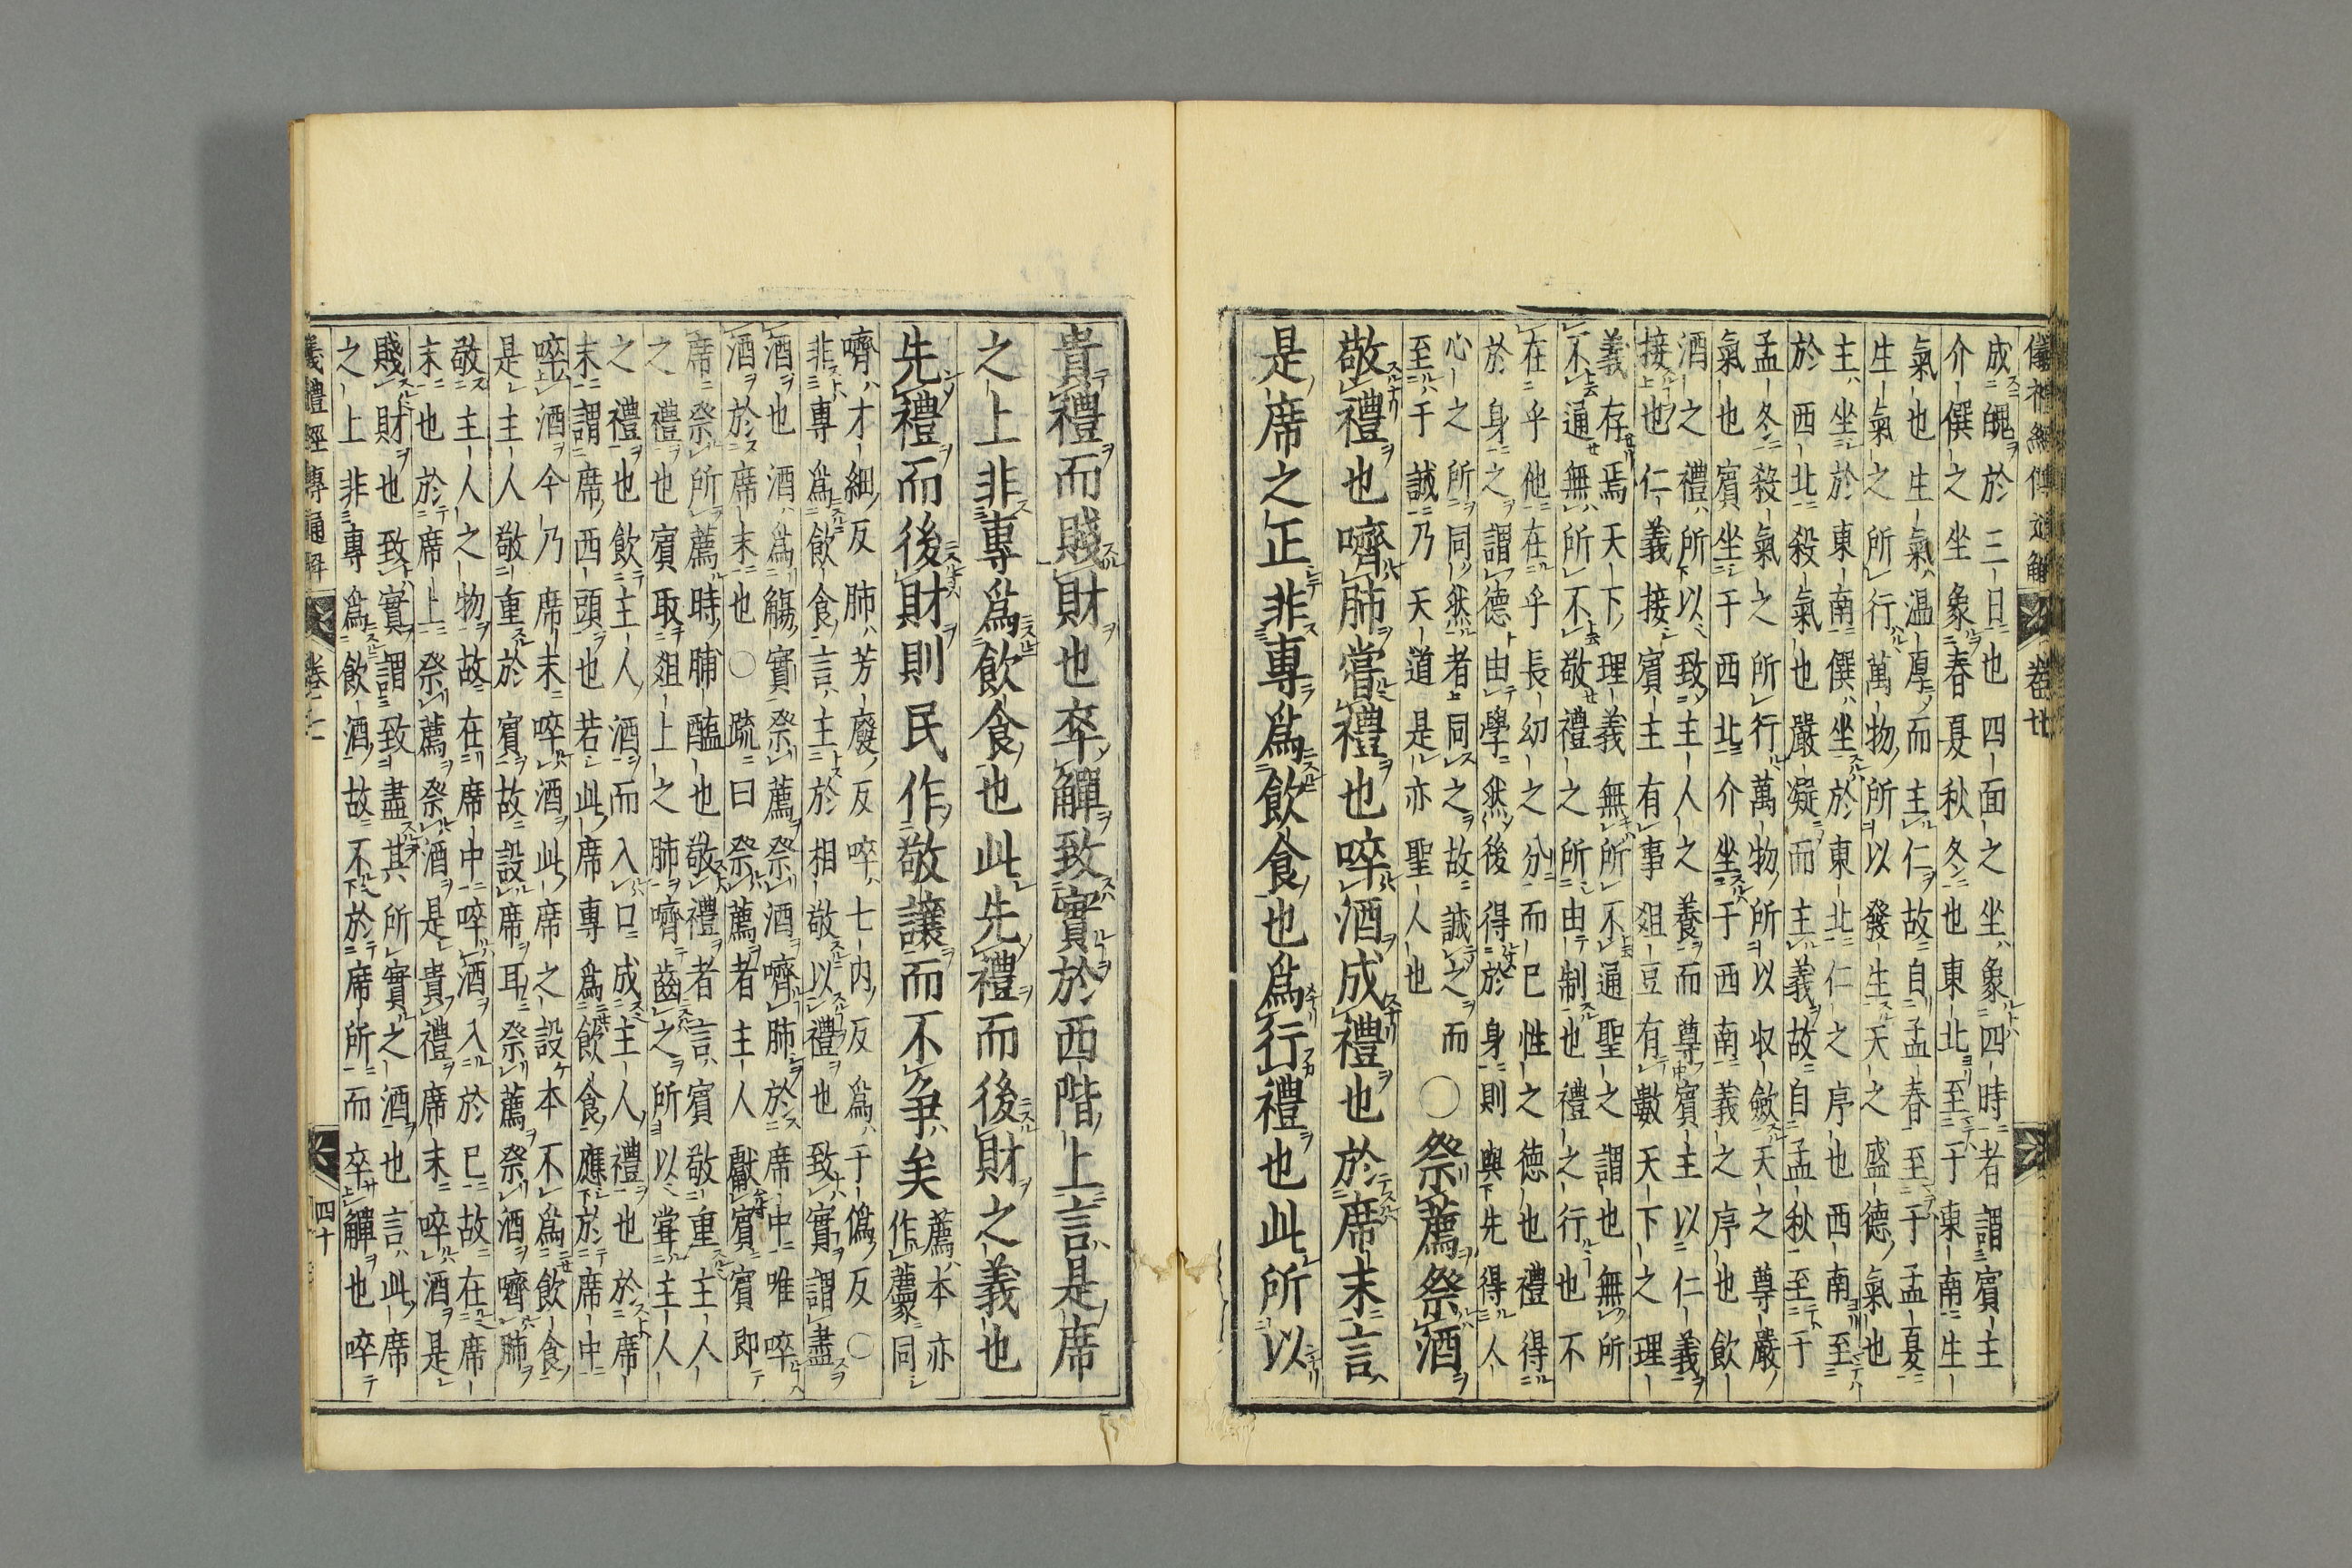 儀禮經傳通解 卷廿
成魄於三日也四面之坐象四時者謂賓主
介僎之坐象春夏秋冬也東北至于東南生
氣也生氣温厚而主仁故自孟春至于孟夏
生氣之所行萬物所以發生天之盛德氣也
主坐於東南僎坐於東北仁之序也西南至
於西北殺氣也嚴凝而主義故自孟秋至于
孟冬殺氣之所行萬物所以收斂天之尊嚴
氣也賓坐于西北介坐于西南義之序也飲
酒之禮所以致主人之養而尊賓主以仁義
接也仁義接賓主有事俎豆有數天下之理
義存焉天下理義無所不通聖之謂也無所
不通無所不敬禮之所由制也禮之行也不
在乎他在乎長幼之分而已性之德也禮得
於身之謂德由學然後得於身則與先得人
心之所同然者同之故誠之而
至于誠乃天道是亦聖人也
〇祭薦祭酒
敬禮也嚌肺嘗禮也啐酒成禮也於席末言
是席之正非專爲飲食也爲行禮也此所以
貴禮而賤財也卒觶致實於西階上言是席
之上非專爲飲食也此先禮而後財之義也
先禮而後財則民作敬讓而不争矣
薦本亦
作薦同
嚌才細反肺芳廢反啐七内反爲于僞反〇
非專爲飲食言主於相敬以禮也致實謂盡
酒也酒爲觴實祭薦祭酒嚌肺於席中唯啐
酒於席末也〇疏曰祭薦者主人獻賓賓即
席祭所薦時脯醢也敬禮者言賓敬重主人
之禮也賓取俎上之肺嚌齒之所以嘗主人
之禮也飲主人酒而入口成主人禮也於席
末謂席西頭也若此席專爲飲食應於席中
啐酒今乃席末啐酒此席之設本不爲飲食
是主人敬重於賓故設席耳祭薦祭酒嚌肺
敬主人之物故在席中啐酒入於已故在席
末也於席上祭薦祭酒是貴禮席末啐酒是
賤財也致實謂致盡其所實之酒也言此席
之上非專爲飲酒故不於席所而卒觶也啐
儀禮經傳通解 卷二 四十